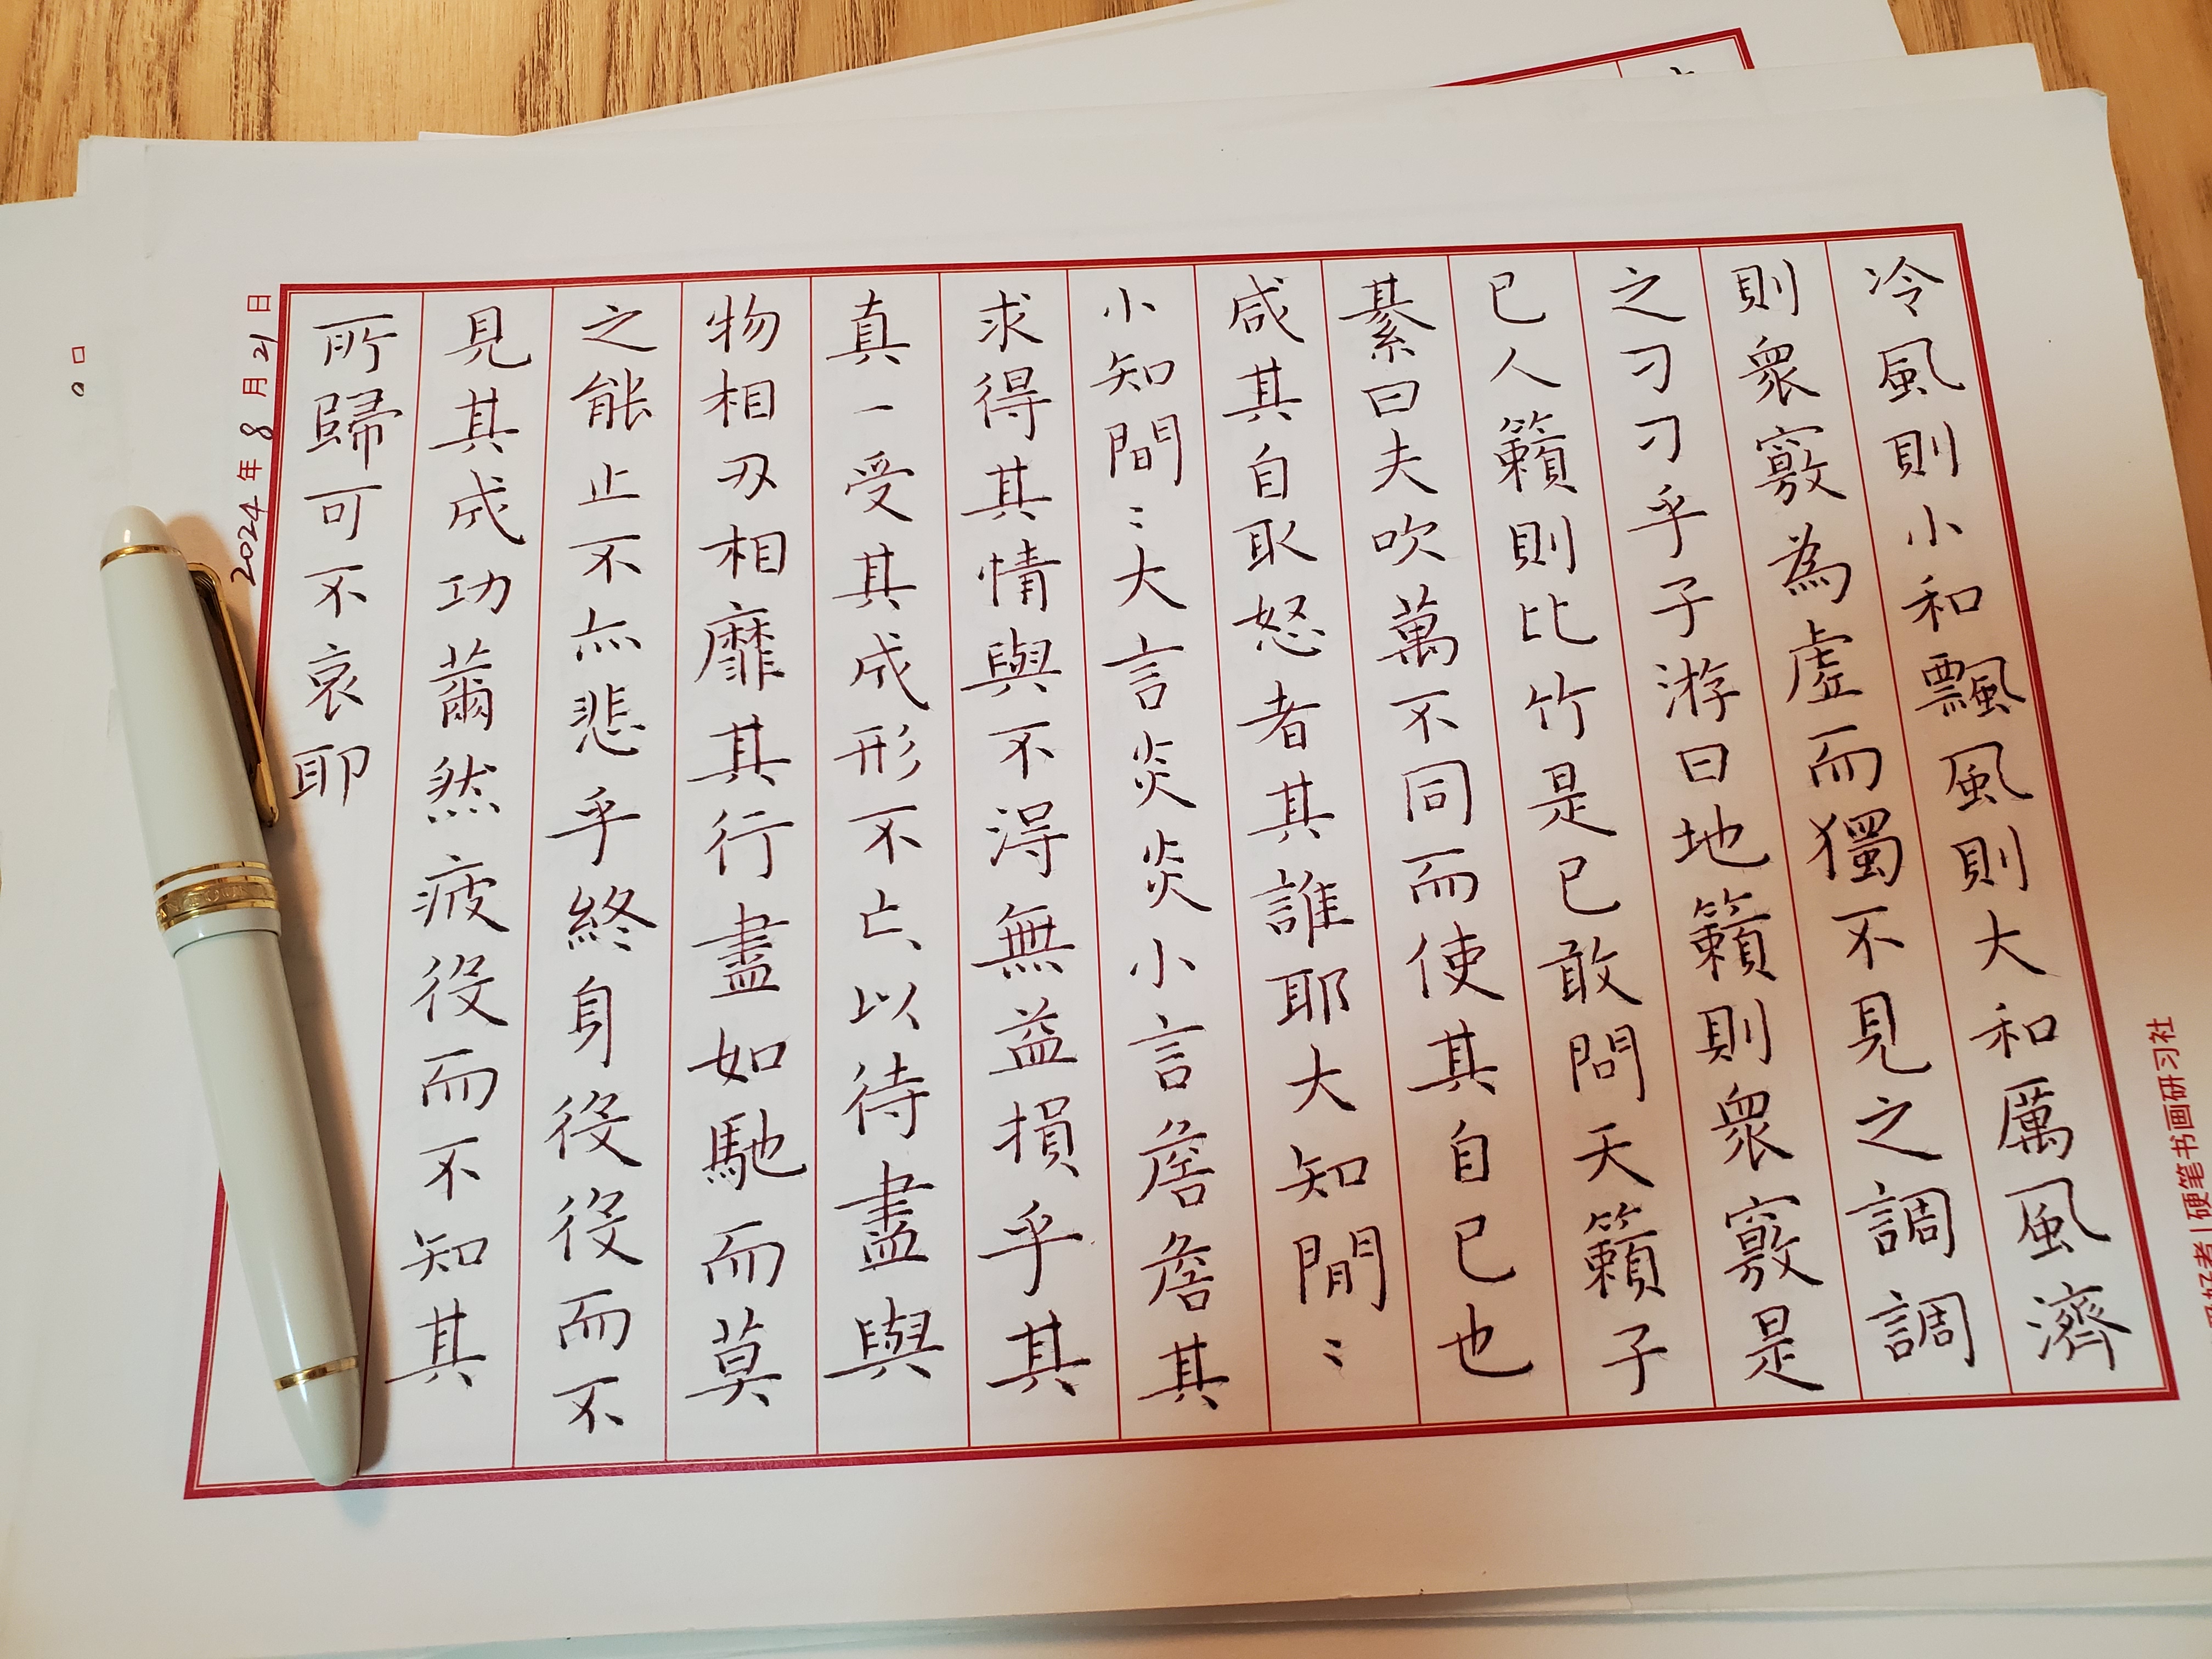 冷風則小和飄風則大和厲風濟
則衆竅為虛而獨不見之調調
之刁刁乎子游曰地籟則衆竅是
已人籟則比竹是已敢問天籟子
綦曰夫吹萬不同而使其自已也
咸其自取怒者其誰耶大知閒〻
小知間〻大言炎炎小言詹詹其
求得其情與不淂無益損乎其
真一受其成形不亡以待盡與
物相刃相靡其行盡如馳而莫
之能止不亦悲乎終身役役而不
見其成功薾然疲役而不知其
所歸可不哀耶
2024年8月21日
硬笔书画研习社